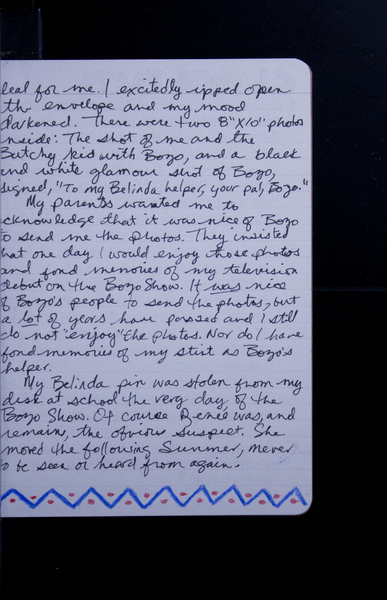 deal for me. I excitedly ripped open
the envelope and my mood
darkened. There were two 8"X10" photos
inside: The shot of me and the
Butchy kid with Bozo, and a black
and white glamour shot of Bozo,
signed, "To my Belinda helper, your pal, Bozo."
My parents wanted me to
cknowledge that it was nice of Bozo
to send me the photos. They insisted
that one day I would enjoy those photos
and fond memories of my television
debut on the Bozo Show. It was nice
of Bozo's people to send the photos, but
a lot of years have passed and I still
do not "enjoy" the photos. Nor do I have
fond memories of my stint as Bozo's
helper.
My Belinda pin was stolen from my
desk at school the very day of the
Bozo Show. Of course Renee was, and
remains, the obvious suspect. She
moved the following Summer, never
to be seen or heard from again.